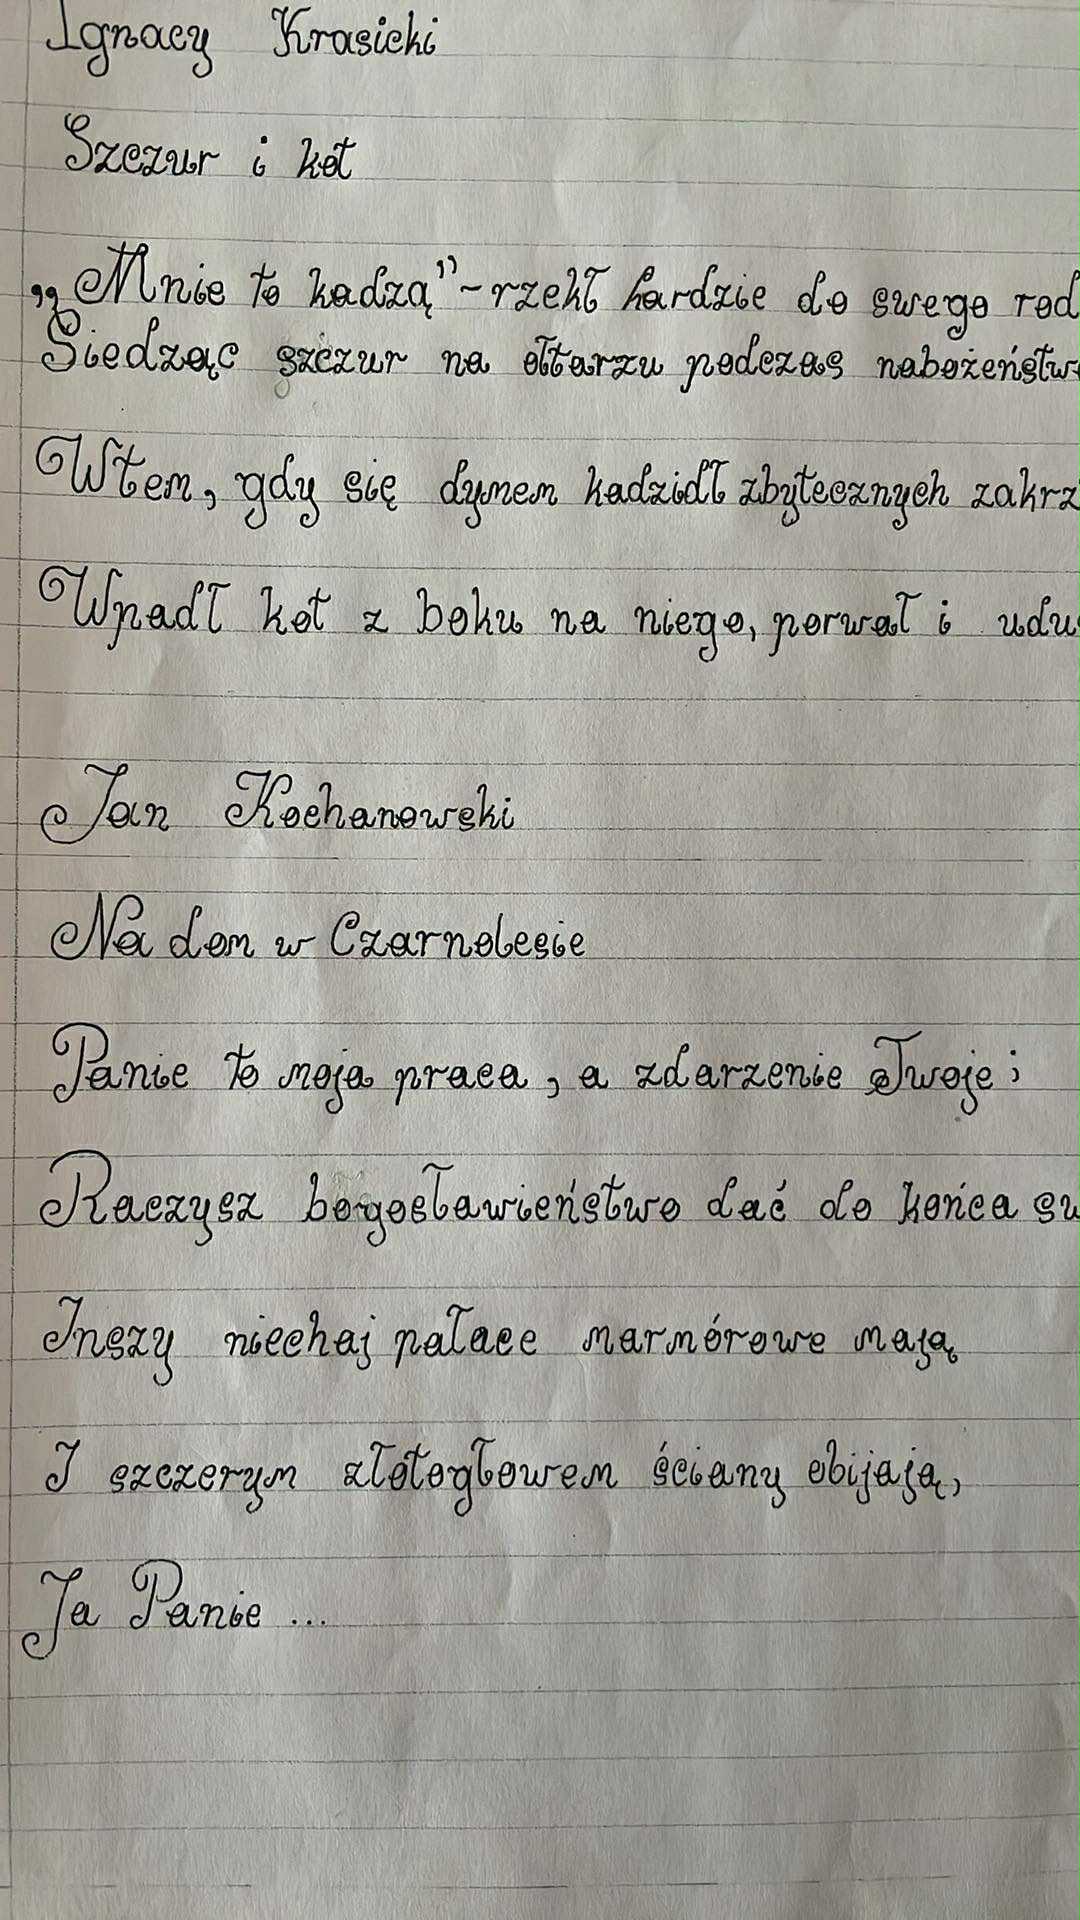 Ignacy Krasicki
Szczur i kot
„Mnie to kadzą" - rzekł hardzie do swego rod
Siedząc szczur na ołtarzu podczas nabożeństw
Wtem, gdy się dymem kadzidł zbytecznych zakrz
Wpadł kot z boku na niego, porwał i udu
Jan Kochanowski
Na dom w Czarnolesie
Panie to moja praca, a zdarzenie Twoje;
Raczysz bogosławieństwo dać do końca sw
Inszy niechaj pałace marmórowe mają
I szczerym złotogłowem ściany obijają,
Ja Panie ...